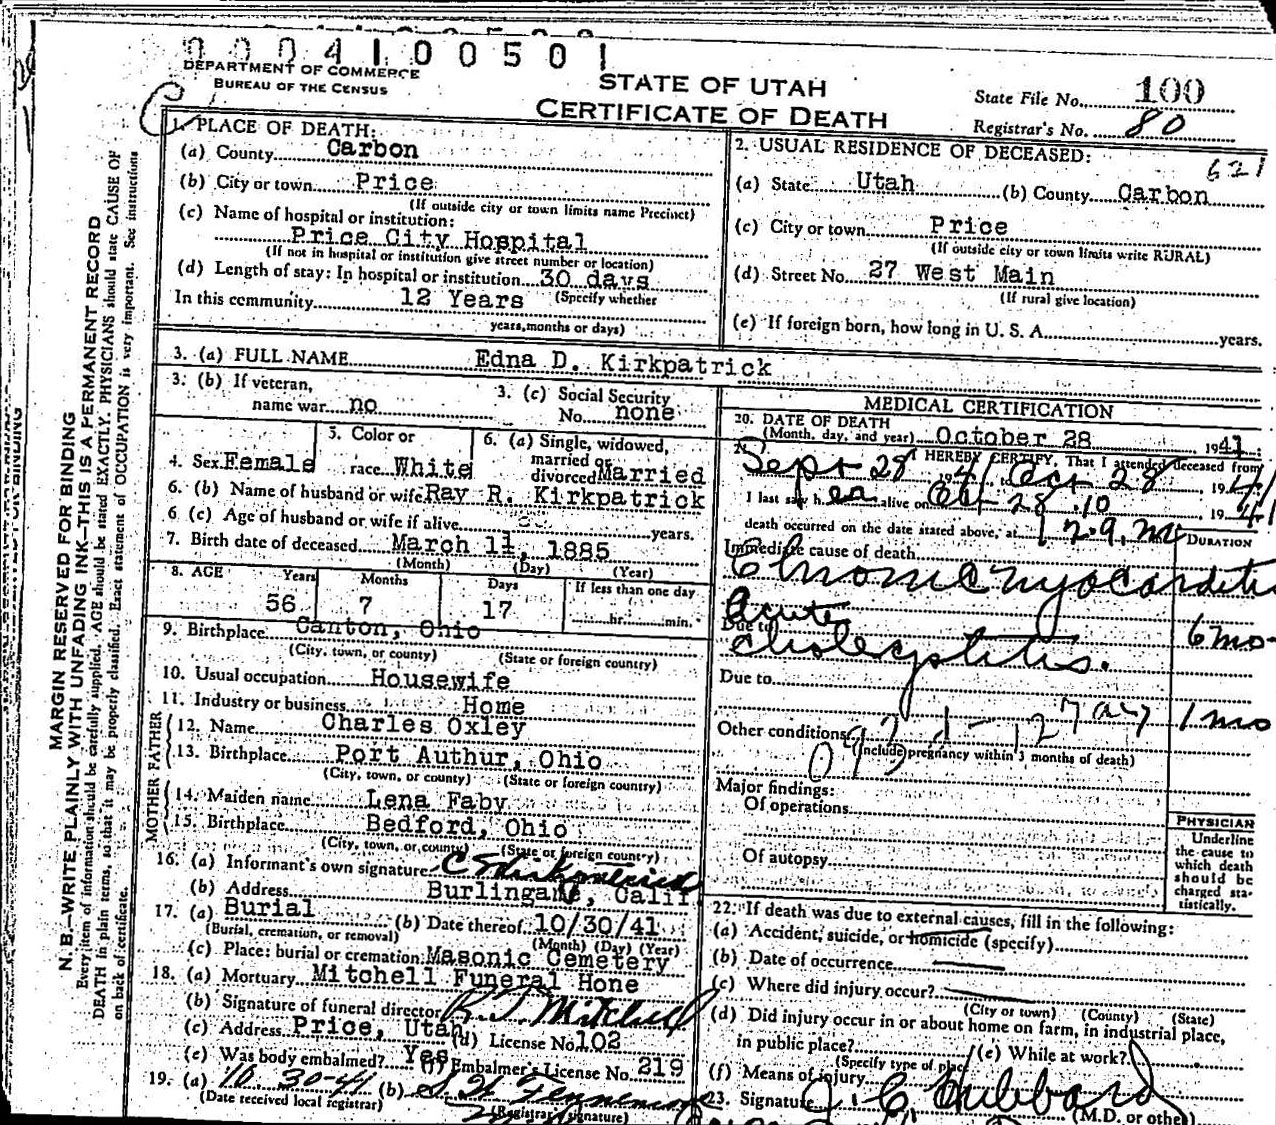 0004100501
DEPARTMENT OF COMMERCE
BUREAU OF THE CENSUS
STATE OF UTAH
CERTIFICATE OF DEATH
State File No. 100
Registrar's No. 80
1. PLACE OF DEATH:
(a) County Carbon
(b) City or town Price
(If outside city or town limits name Precinct)
(c) Name of hospital or institution:
Price City Hospital
(If not in hospital or institution give street number or location)
(d) Length of stay: In hospital or institution 30 days
(Specify whether
In this community 12 Years
years, months or days)
2. USUAL RESIDENCE OF DECEASED:
621
(a) State Utah (b) County Carbon
(c) City or town Price
(If outside city or town limits write RURAL)
(d) Street No. 27 West Main
(If rural give location)
(e) If foreign born, how long in U. S. A. years.
3. (a) FULL NAME Edna D. Kirkpatrick
3. (b) If veteran,
name war no
3. (c) Social Security
No. none
4. Sex Female
5. Color or
race White
6. (a) Single, widowed,
married or
divorced Married
6. (b) Name of husband or wife Ray R. Kirkpatrick
6 (c) Age of husband or wife if alive years.
7. Birth date of deceased March 11, 1885
(Month) (Day) (Year)
8. AGE Years Months Days If less than one day
56 7 17 hr. min.
9. Birthplace Canton, Ohio
(City, town, or county) (State or foreign country)
10. Usual occupation Housewife
11. Industry or business Home
FATHER
12. Name Charles Oxley
13. Birthplace Port Authur, Ohio
(City, town, or county) (State or foreign country)
MOTHER
14. Maiden name Lena Faby
15. Birthplace Bedford, Ohio
(City, town, or county) (State or foreign country)
16. (a) Informant's own signature Kirkpatrick
(b) Address Burlingame, Calif
17. (a) Burial (b) Date thereof 10/30/41
(Burial, cremation, or removal) (Month) (Day) (Year)
(c) Place: burial or cremation Masonic Cemetery
18. (a) Mortuary Mitchell Funeral Hone
(b) Signature of funeral director R. T. Mitchell
(c) Address Price, Utah (d) License No 102
(e) Was body embalmed? Yes (f) Embalmer's License No. 219
19. (a) 10 30-41 (b)
(Date received local registrar) (Registrar signature)
MEDICAL CERTIFICATION
20. DATE OF DEATH
(Month, day, and year) October 28 1941
HEREBY CERTIFY, That I attended deceased from
Sept 28 1941 Oct 28 1941
I last saw her alive on Oct 28 1941
death occurred on the date stated above, at
DURATION
Immediate cause of death
Chronic myocarditis
Acute 6 mo
Due to
Cholecystitis.
Due to
127 1 mo
Other conditions
(Include pregnancy within 3 months of death)
Major findings:
Of operations
Of autopsy
PHYSICIAN
Underline
the cause to
which death
should be
charged sta-
tistically.
22. If death was due to external causes, fill in the following:
(a) Accident, suicide, or homicide (specify)
(b) Date of occurrence
(c) Where did injury occur?
(City or town) (County) (State)
(d) Did injury occur in or about home on farm, in industrial place,
in public place? (e) While at work?
(Specify type of place
(f) Means of injury
23. Signature J. C. Hubbard
(M.D. or other)
MARGIN RESERVED FOR BINDING
N. B.—WRITE PLAINLY WITH UNFADING INK—THIS IS A PERMANENT RECORD
Every item of information should be carefully supplied. AGE should be stated EXACTLY. PHYSICIANS should state CAUSE OF
DEATH in plain terms, so that it may be properly classified. Exact statement of OCCUPATION is very important. See instructions
on back of certificate.